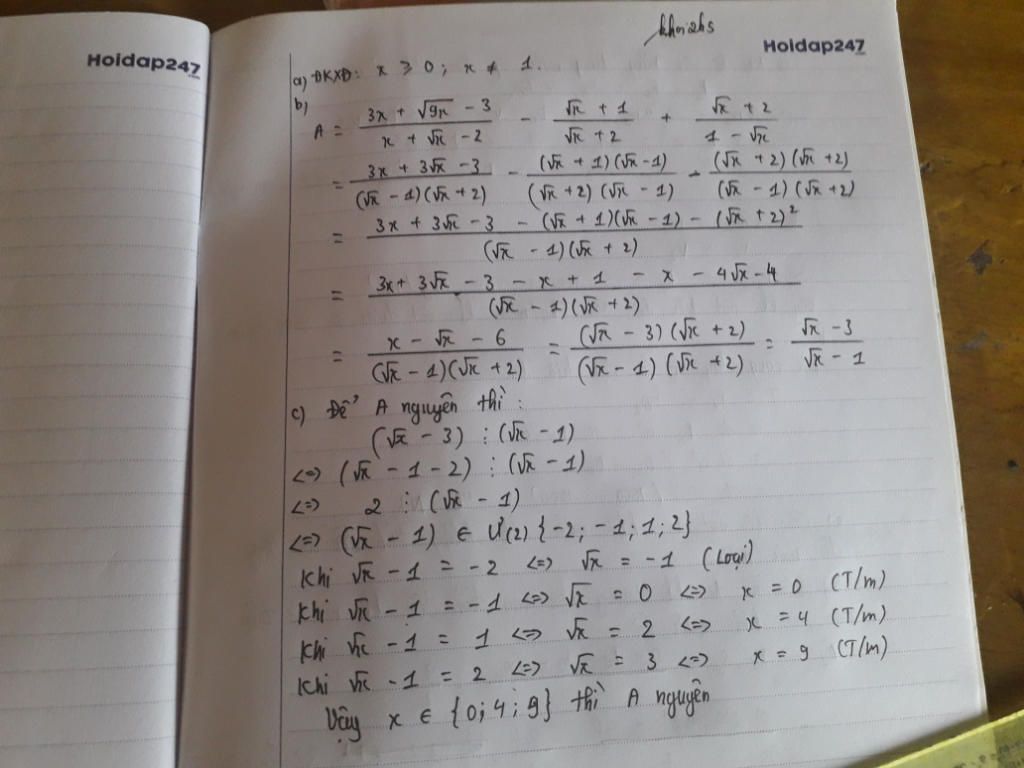 Hoidap247
khoi2k5
Hoidap247
a) ĐKXĐ: x ≥ 0; x ≠ 1.
b)
A = (3x + √9x - 3)/(x + √x - 2) - (√x + 1)/(√x + 2) + (√x + 2)/(1 - √x)
= (3x + 3√x - 3)/((√x - 1)(√x + 2)) - ((√x + 1)(√x - 1))/((√x + 2)(√x - 1)) - ((√x + 2)(√x + 2))/((√x - 1)(√x + 2))
= (3x + 3√x - 3 - (√x + 1)(√x - 1) - (√x + 2)²)/((√x - 1)(√x + 2))
= (3x + 3√x - 3 - x + 1 - x - 4√x - 4)/((√x - 1)(√x + 2))
= (x - √x - 6)/((√x - 1)(√x + 2)) = ((√x - 3)(√x + 2))/((√x - 1)(√x + 2)) = (√x - 3)/(√x - 1)
c) Để A nguyên thì:
(√x - 3) ⋮ (√x - 1)
<=> (√x - 1 - 2) ⋮ (√x - 1)
<=> 2 ⋮ (√x - 1)
<=> (√x - 1) ∈ Ư(2) {-2; -1; 1; 2}
Khi √x - 1 = -2 <=> √x = -1 (Loại)
Khi √x - 1 = -1 <=> √x = 0 <=> x = 0 (T/m)
Khi √x - 1 = 1 <=> √x = 2 <=> x = 4 (T/m)
Khi √x - 1 = 2 <=> √x = 3 <=> x = 9 (T/m)
Vậy x ∈ {0; 4; 9} thì A nguyên